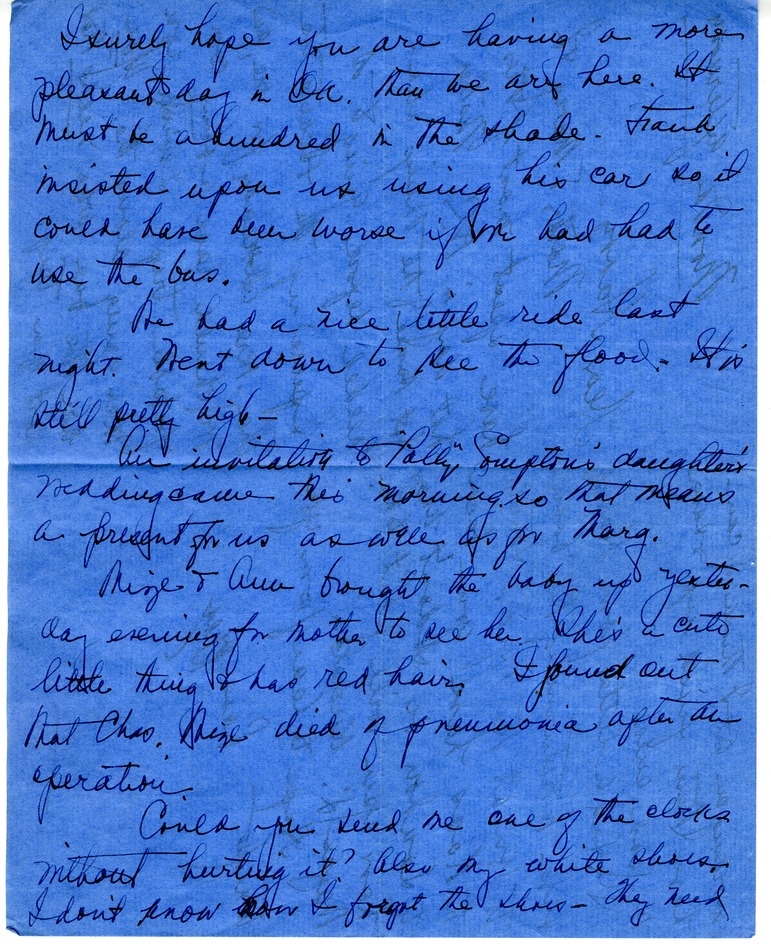 I surely hope you are having a more
pleasant day in Oa. than we are here. It
must be a hundred in the shade. Frank
insisted upon us using his car so it
could have been worse if we had had to
use the bus.
We had a nice little ride last
night. Went down to see the flood. It is
still pretty high—
An invitation to "Polly" Compton's daughter's
wedding came this morning so that means
a present for us as well as for Marg.
Mize & Ann brought the baby up yester-
day evening for mother to see her. She's a cute
little thing & has red hair. I found out
that Chas. Mize died of pneumonia after an
operation.
Could you send me one of the clocks
without hurting it? Also my white shoes.
I don't know how I forgot the shoes— They need